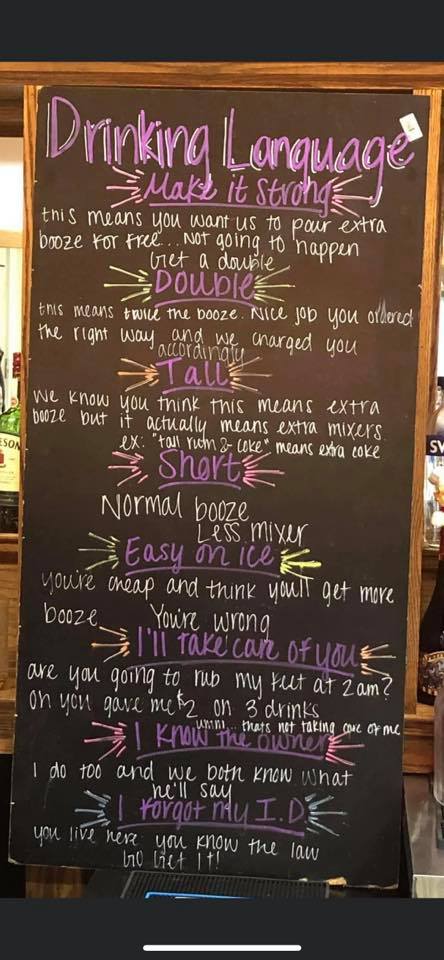 Drinking Language
Make it strong
this means you want us to pour extra
booze for free... Not going to happen
Get a double
Double
this means twice the booze. Nice job you ordered
the right way and we charged you
accordingly
Tall
We know you think this means extra
booze but it actually means extra mixers
ex: "tall rum & coke" means extra coke
Short
Normal booze
Less mixer
Easy on ice
you're cheap and think you'll get more
booze. You're wrong
I'll take care of you
are you going to rub my feet at 2am?
oh you gave me $2 on 3 drinks
umm... thats not taking care of me
I know the owner
I do too and we both know what
he'll say
I forgot my I.D.
you live here you know the law
Go Get It!